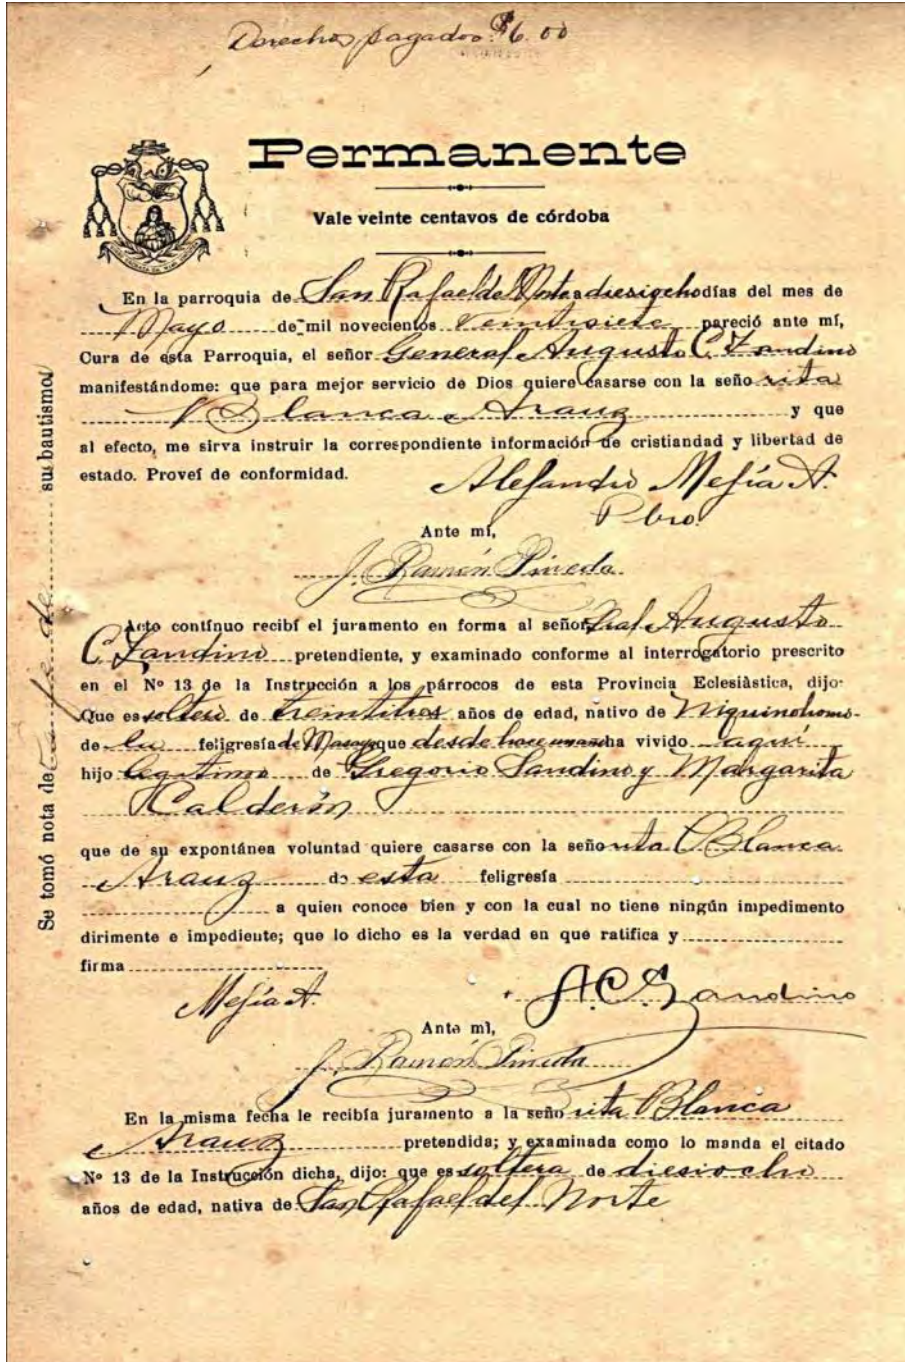 Derechos pagados $6.00
Permanente
Vale veinte centavos de córdoba
En la parroquia de San Rafael del Norte a diesiocho días del mes de
Mayo de mil novecientos veintisiete pareció ante mí,
Cura de esta Parroquia, el señor General Augusto C. Zandino
manifestándome: que para mejor servicio de Dios quiere casarse con la seño rita
Blanca Arauz y que
al efecto, me sirva instruir la correspondiente información de cristiandad y libertad de
estado. Proveí de conformidad.
Alejandro Mejía A.
Pbro.
Ante mí,
J. Ramón Pineda
Acto contínuo recibí el juramento en forma al señor Gral Augusto
C. Zandino pretendiente, y examinado conforme al interrogatorio prescrito
en el Nº 13 de la Instrucción a los párrocos de esta Provincia Eclesiàstica, dijo:
Que es soltero de treintitres años de edad, nativo de Niquinohomo
de la feligresía de Masaya que desde hace un año ha vivido aquí
hijo legitimo de Gregorio Sandino y Margarita
Calderón
que de su expontánea voluntad quiere casarse con la seño rita Blanca
Arauz de esta feligresía
a quien conoce bien y con la cual no tiene ningún impedimento
dirimente e impediente; que lo dicho es la verdad en que ratifica y
firma
Mejía A.
A C Sandino
Ante mí,
J. Ramón Pineda
En la misma fecha le recibía juramento a la seño rita Blanca
Arauz pretendida; y examinada como lo manda el citado
Nº 13 de la Instrucción dicha, dijo: que es soltera de diesiocho
años de edad, nativa de San Rafael del Norte
Se tomó nota de sus fes de sus bautismos